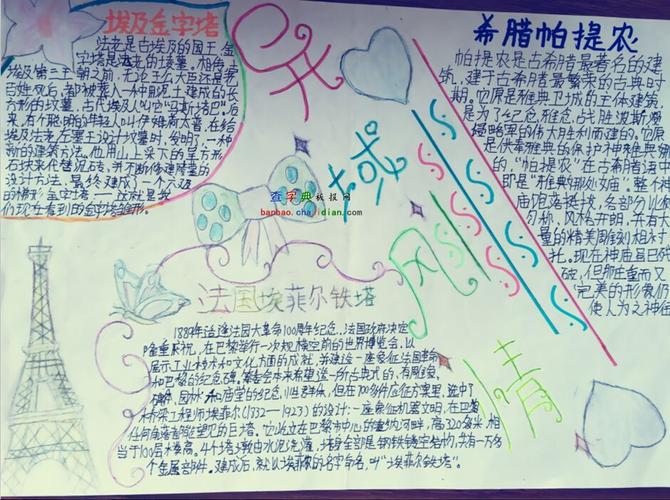 埃及金字塔
法老是古埃及的国王,金
字塔是法老的坟墓。相传,古
埃及第三王朝之前,无论王公大臣还是老
百姓死后,都被葬入一种用泥土建成的长
方形的坟墓,古代埃及人叫它"马斯塔巴"。后
来,有个聪明的年轻人叫伊姆荷太普,在给
埃及法老左塞王设计坟墓时,发明了一种
新的建筑方法。他用山上采下的呈方形
的石块来代替泥砖,并不断修建陵墓的
设计方法,最终建成了一个六级
的梯形金字塔——这就是我
们现在看到的金字塔雏形。
异
域
风
情
希腊帕提农
帕提农是古希腊最著名的建
筑。建于古希腊最繁荣的古典时
期。它原是雅典卫城的主体建筑
是为了纪念雅典战胜波斯
侵略军的伟大胜利而建的。它原
是供奉雅典的保护神
的"帕提农"在古希腊语中
即是"雅典娜处女庙"。整个
庙 挺拔,各部分比例
匀称,风格开朗,并有
量的精美雕刻相
托。现在神庙虽已
破,但那庄重而又
完美的形象仍
使人为之神往
查字典板报网
banbao.chazidian.com
法国埃菲尔铁塔
1889年适逢法国大革命100周年纪念,法国政府决定
隆重庆祝,在巴黎举行一次规模空前的世界博览会,以
展示工业技术和文化方面的成就,并建造一座象征法国革命
和巴黎的纪念碑。筹委会本来希望造一所古典式的,有雕象、
碑体、园林和庙堂的纪念性群体,但在700多件应征方案里,选中了
桥梁工程师埃菲尔(1732—1923)的设计:一座象征机器文明,在巴黎
任何角落都能望见的巨塔。它屹立在巴黎市中心的塞纳河畔,高320多米,相
当于100层楼高。4个塔墩由水泥浇灌,塔身全部是钢铁镂空结构,共有一万多
个金属部件。建成后,就以埃菲尔的名字命名,叫"埃菲尔铁塔"。